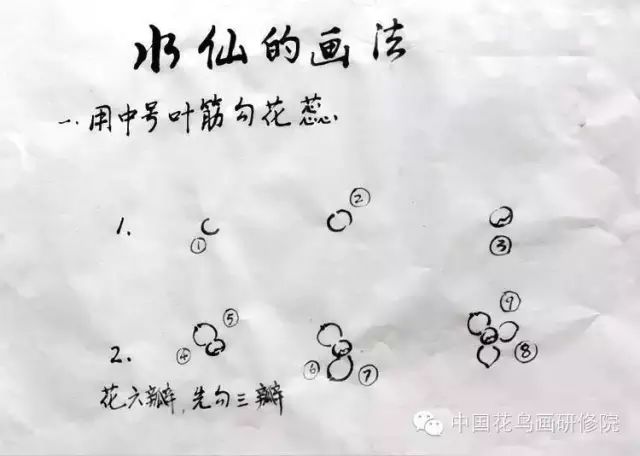 水仙的画法
一.用中号叶筋勾花蕊.
1. ① ② ③
2. ④ ⑤ ⑥ ⑦ ⑧ ⑨
花六瓣,先勾三瓣
中国花鸟画研修院